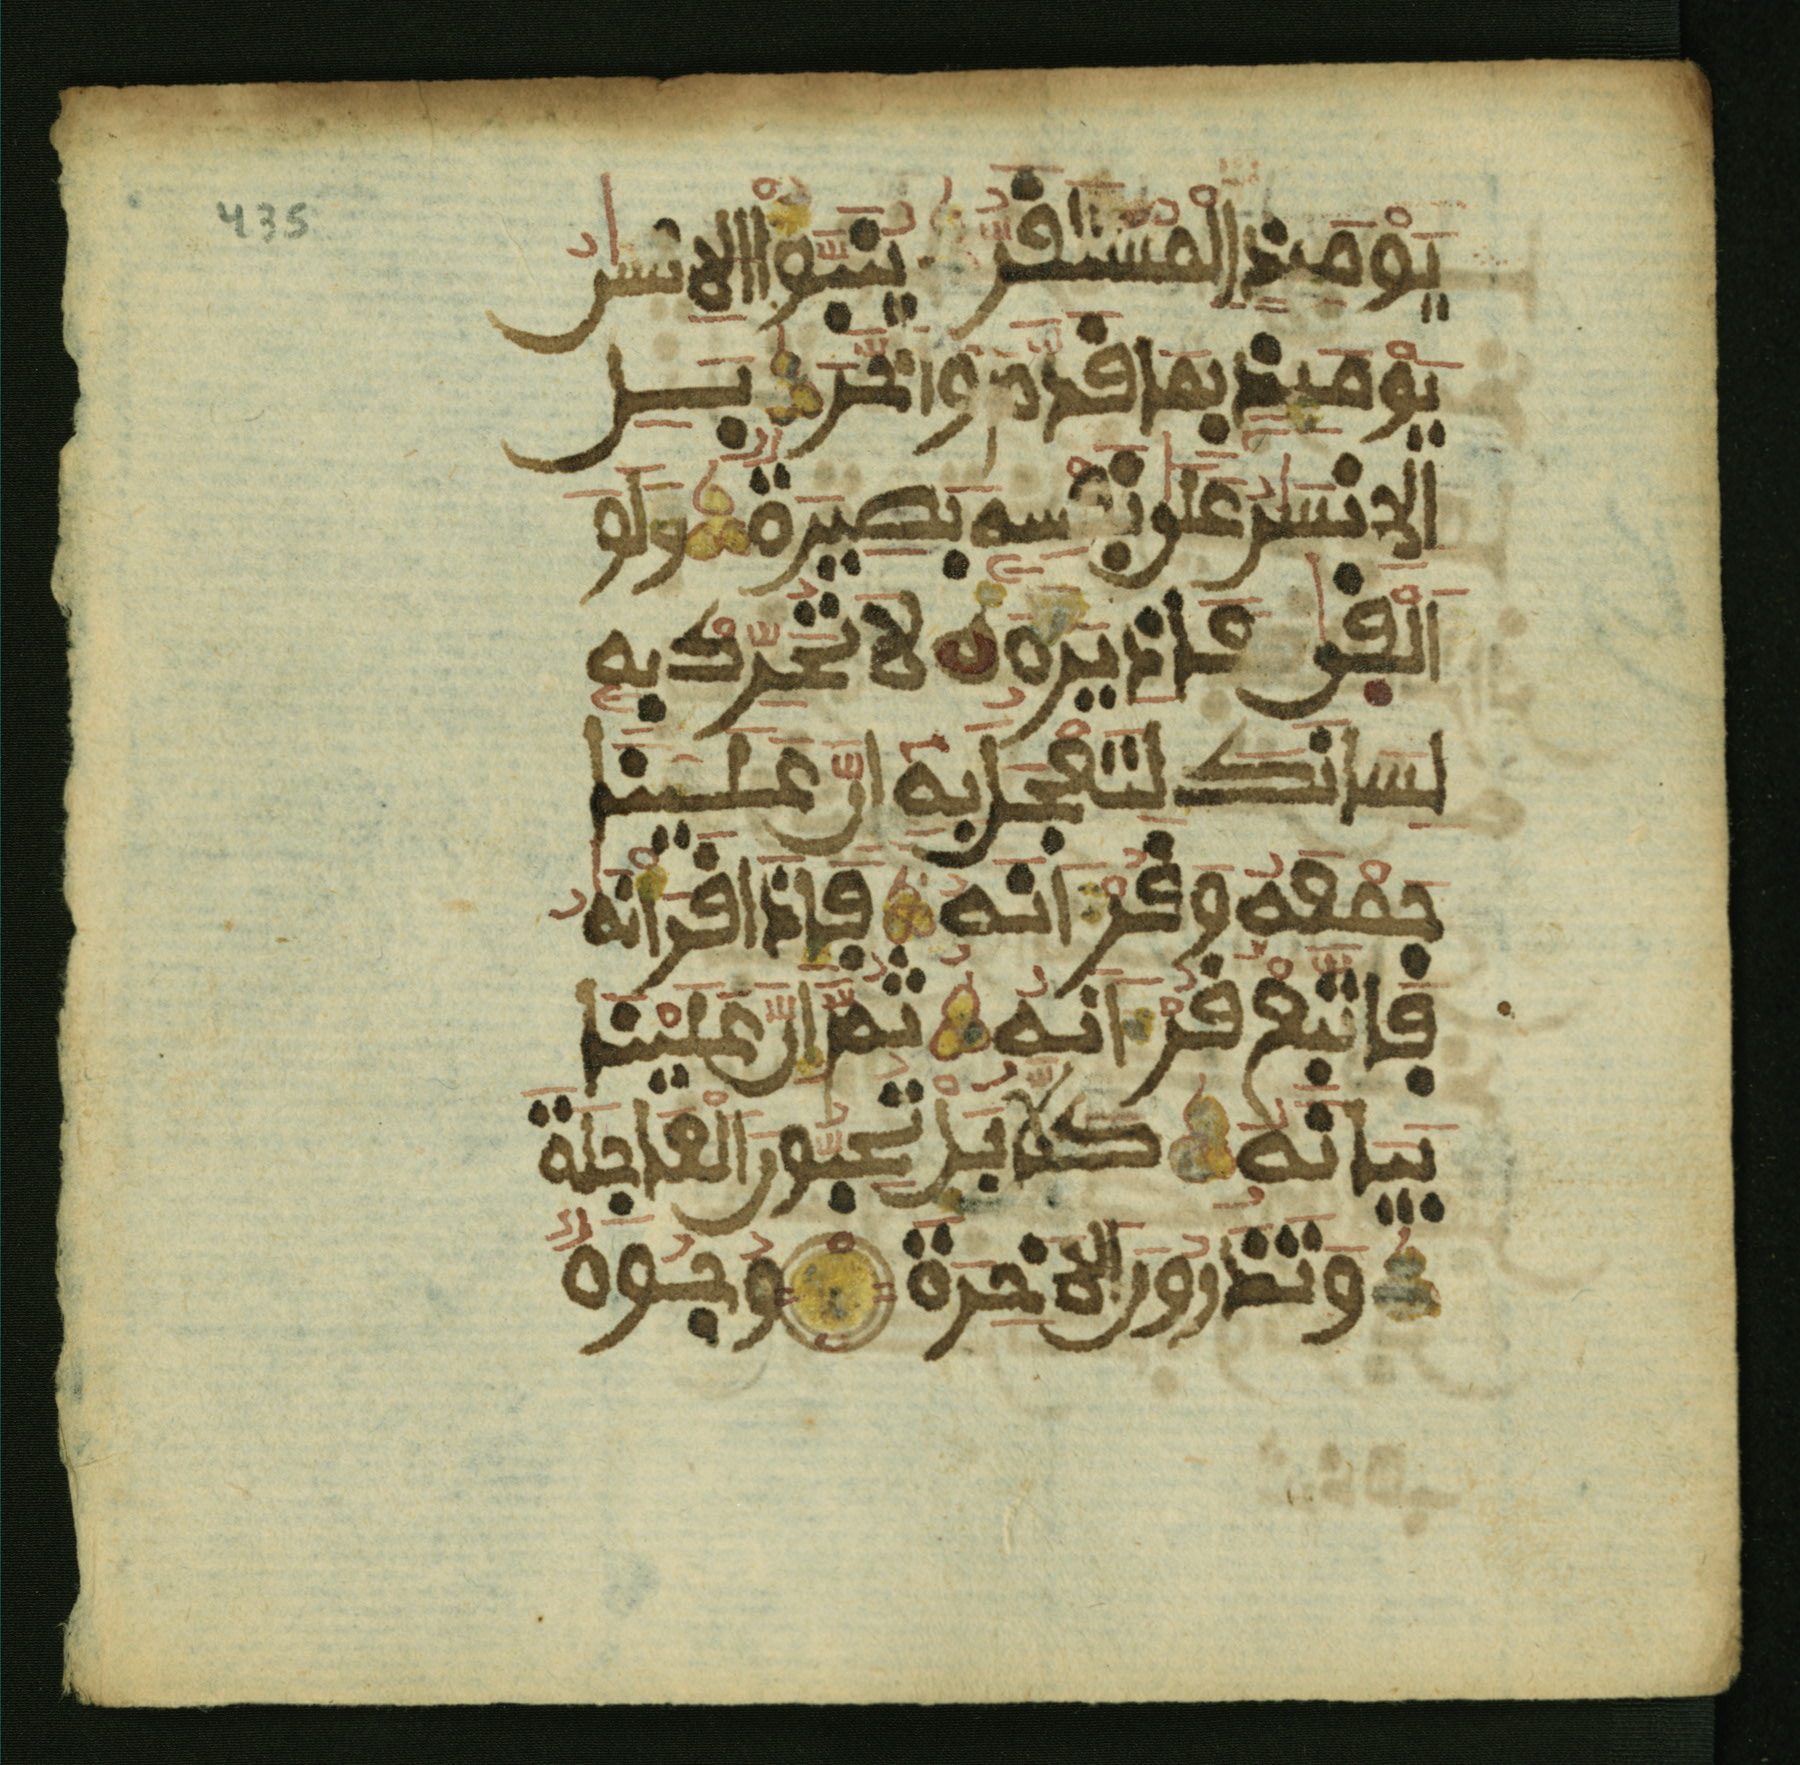 435
يَوْمَئِذٍ الْمُسْتَقَرُّ يُنَبَّؤُا الْإِنسَنُ
يَوْمَئِذٍ بِمَا قَدَّمَ وَأَخَّرَ بَلِ
الْإِنسَنُ عَلَى نَفْسِهِ بَصِيرَةٌ وَلَوْ
أَلْقَى مَعَاذِيرَهُ لَا تُحَرِّكْ بِهِ
لِسَانَكَ لِتَعْجَلَ بِهِ إِنَّ عَلَيْنَا
جَمْعَهُ وَقُرْانَهُ فَإِذَا قَرَأْنَهُ
فَاتَّبِعْ قُرْانَهُ ثُمَّ إِنَّ عَلَيْنَا
بَيَانَهُ كَلَّا بَلْ تُحِبُّونَ الْعَاجِلَةَ
وَتَذَرُونَ الْاخِرَةَ وُجُوهٌ